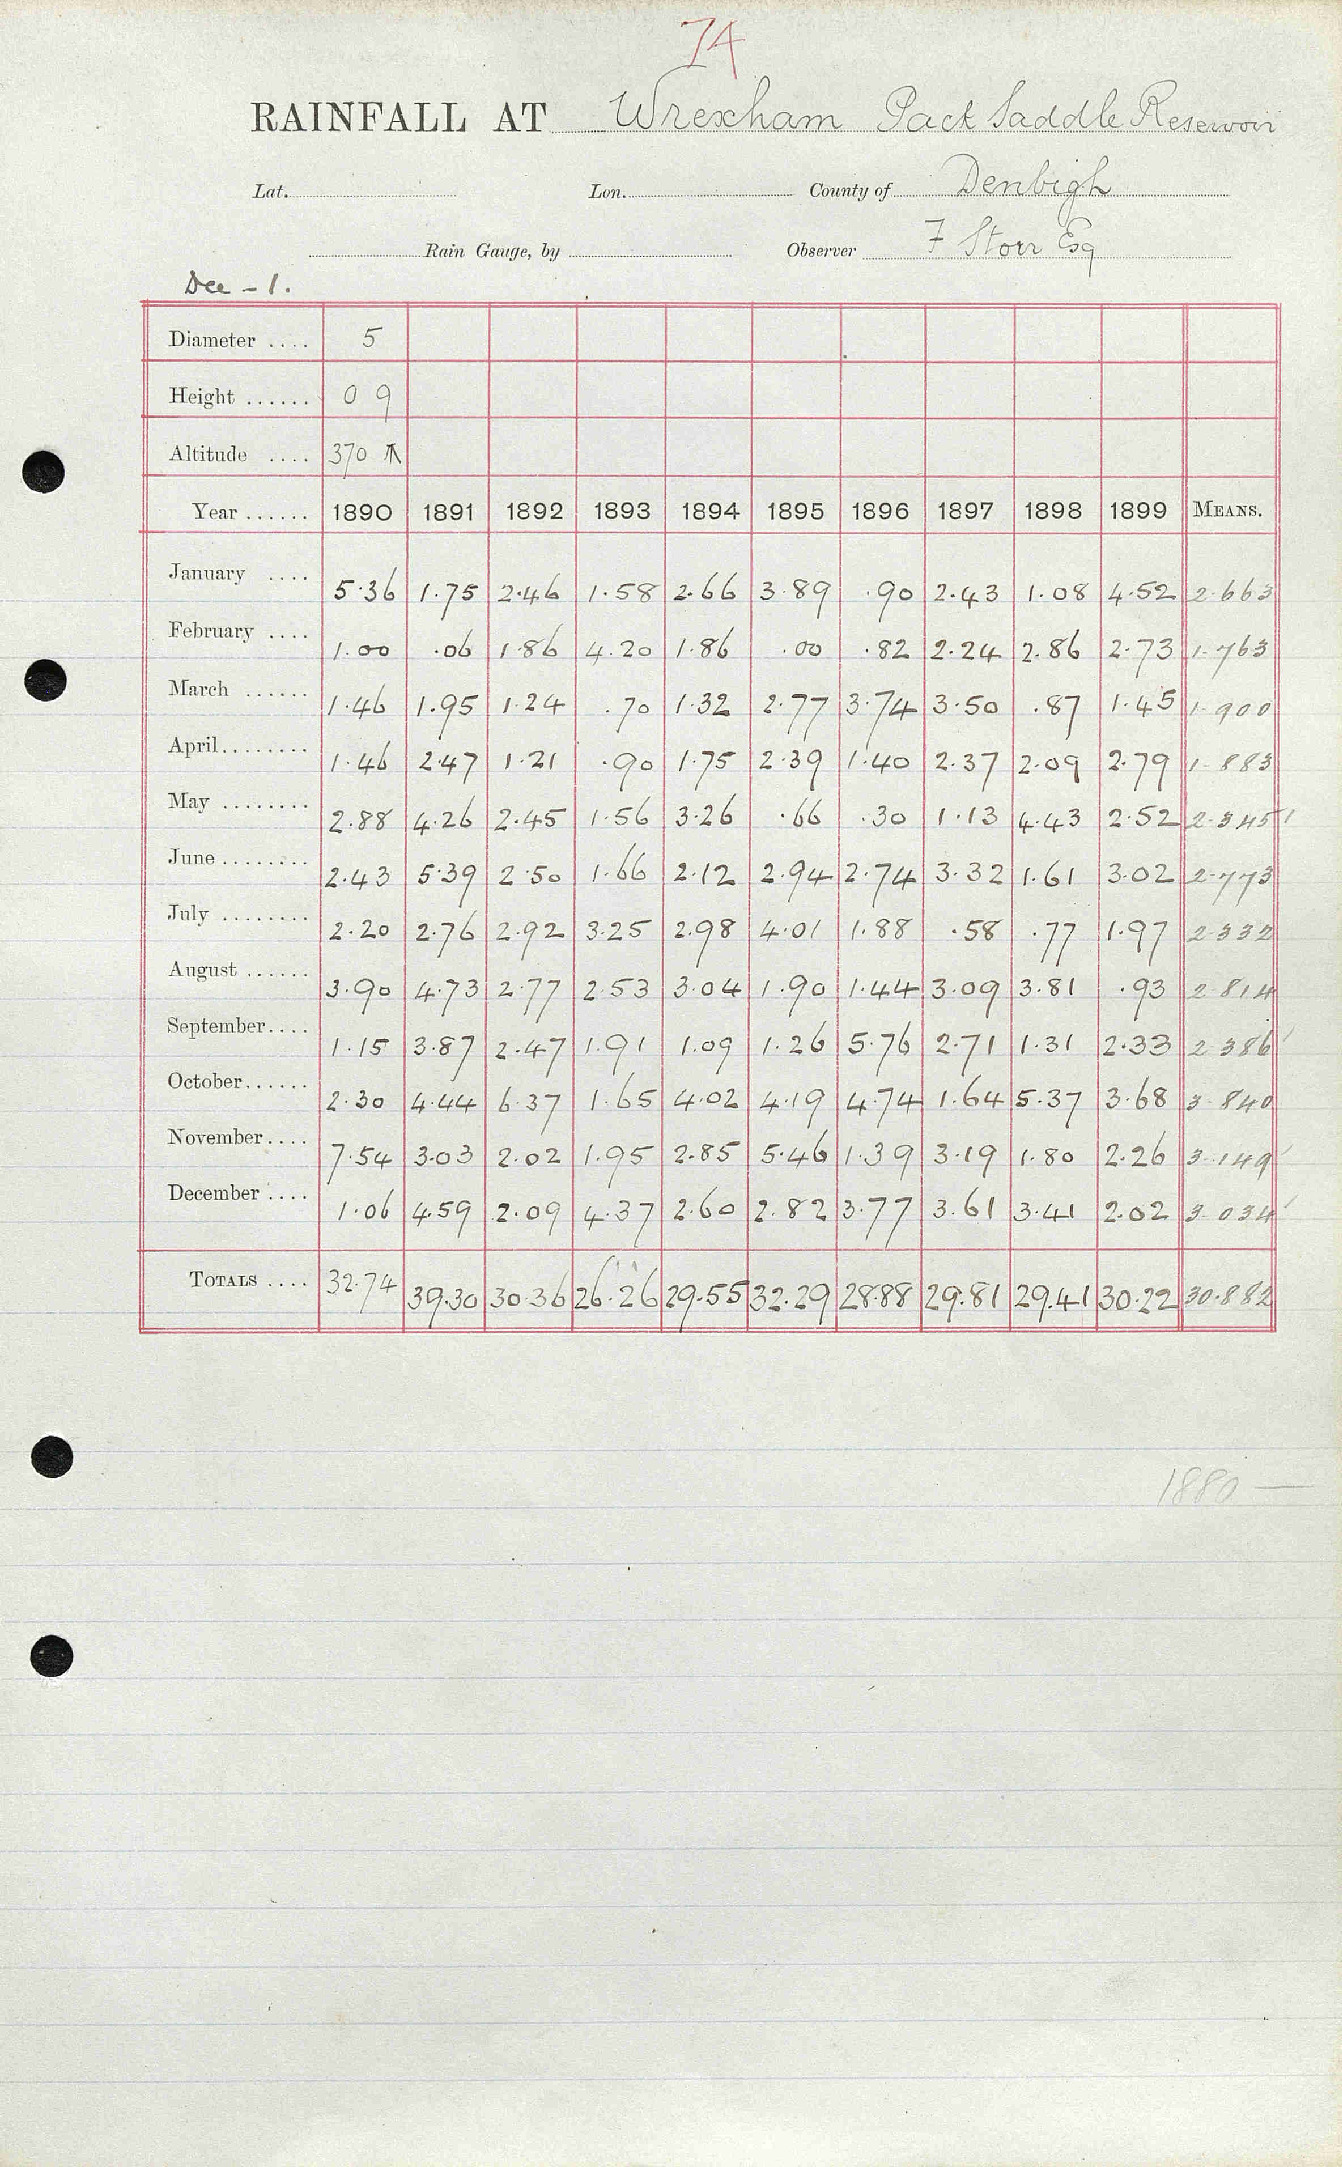 74
RAINFALL AT Wrexham Pack Saddle Reservoir
Lat. Lon. County of Denbigh
Rain Gauge, by Observer F Storr Esq
Dee - 1.
Diameter .... 5
Height ...... 0 9
Altitude .... 370
Year ...... 1890 1891 1892 1893 1894 1895 1896 1897 1898 1899 MEANS.
January .... 5.36 1.75 2.46 1.58 2.66 3.89 .90 2.43 1.08 4.52 2.663
February .... 1.00 .06 1.86 4.20 1.86 .00 .82 2.24 2.86 2.73 1.763
March ...... 1.46 1.95 1.24 .70 1.32 2.77 3.74 3.50 .87 1.45 1.900
April........ 1.46 2.47 1.21 .90 1.75 2.39 1.40 2.37 2.09 2.79 1.883
May ........ 2.88 4.26 2.45 1.56 3.26 .66 .30 1.13 4.43 2.52 2.345
June ........ 2.43 5.39 2.50 1.66 2.12 2.94 2.74 3.32 1.61 3.02 2.773
July ........ 2.20 2.76 2.92 3.25 2.98 4.01 1.88 .58 .77 1.97 2.332
August ...... 3.90 4.73 2.77 2.53 3.04 1.90 1.44 3.09 3.81 .93 2.814
September.... 1.15 3.87 2.47 1.91 1.09 1.26 5.76 2.71 1.31 2.33 2.386
October...... 2.30 4.44 6.37 1.65 4.02 4.19 4.74 1.64 5.37 3.68 3.840
November.... 7.54 3.03 2.02 1.95 2.85 5.46 1.39 3.19 1.80 2.26 3.149
December .... 1.06 4.59 2.09 4.37 2.60 2.82 3.77 3.61 3.41 2.02 3.034
TOTALS .... 32.74 39.30 30.36 26.26 29.55 32.29 28.88 29.81 29.41 30.22 30.882
1880 —